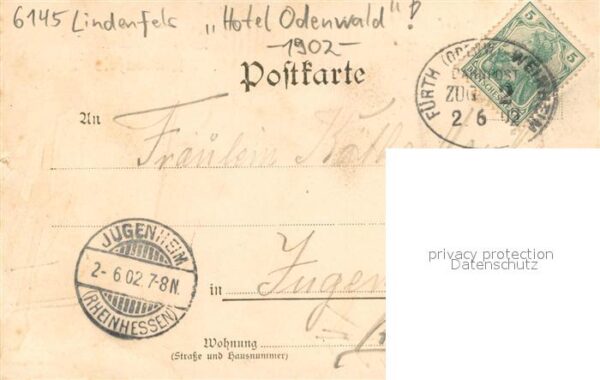 6145 Lindenfels „Hotel Odenwald"!
-1902-
Postkarte
5
FÜRTH (ODENW) WEINHEIM
BAHNPOST
ZUG
2 6 02
An
Fräulein Käthe
JUGENHEIM
2-6.02.7-8N.
(RHEINHESSEN)
in Jugen
privacy protection
Datenschutz
Wohnung
(Straße und Hausnummer)